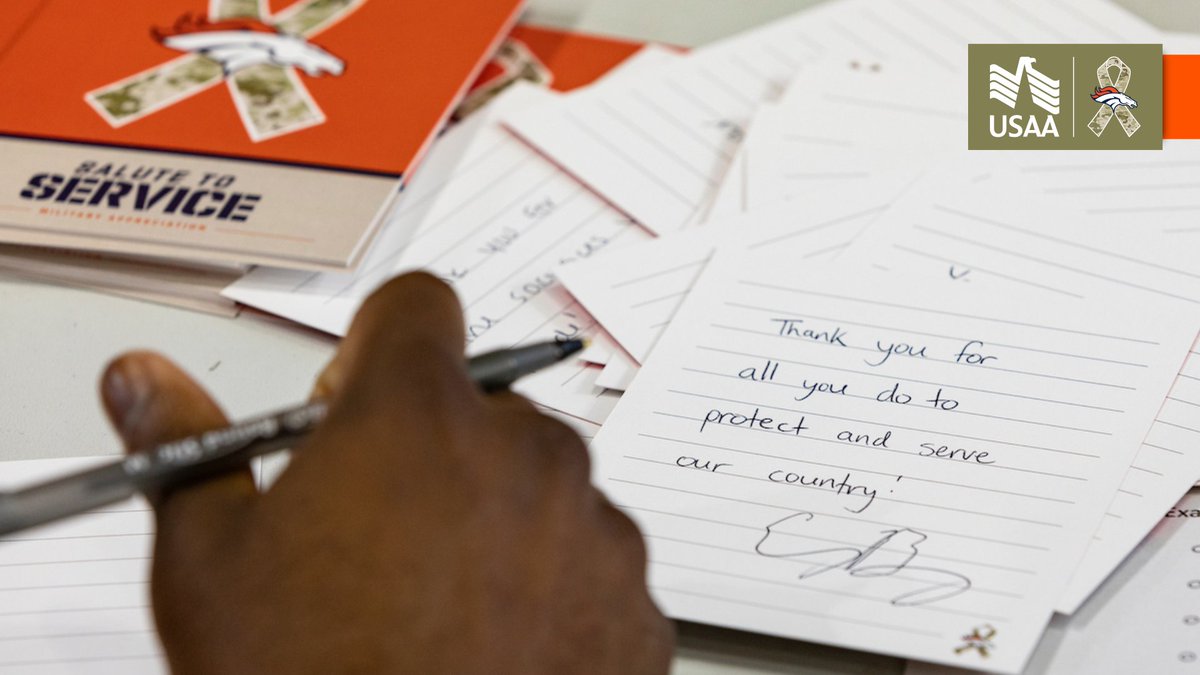 SALUTE TO
SERVICE
MILITARY APPRECIATION
USAA
you for
Thank you for
all you do to
protect and serve
our country!
Exa